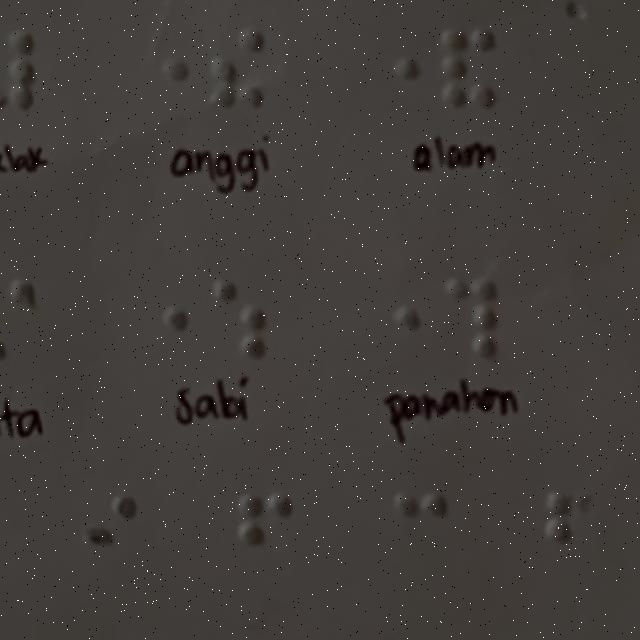 anggi alam
ta sabi panahon